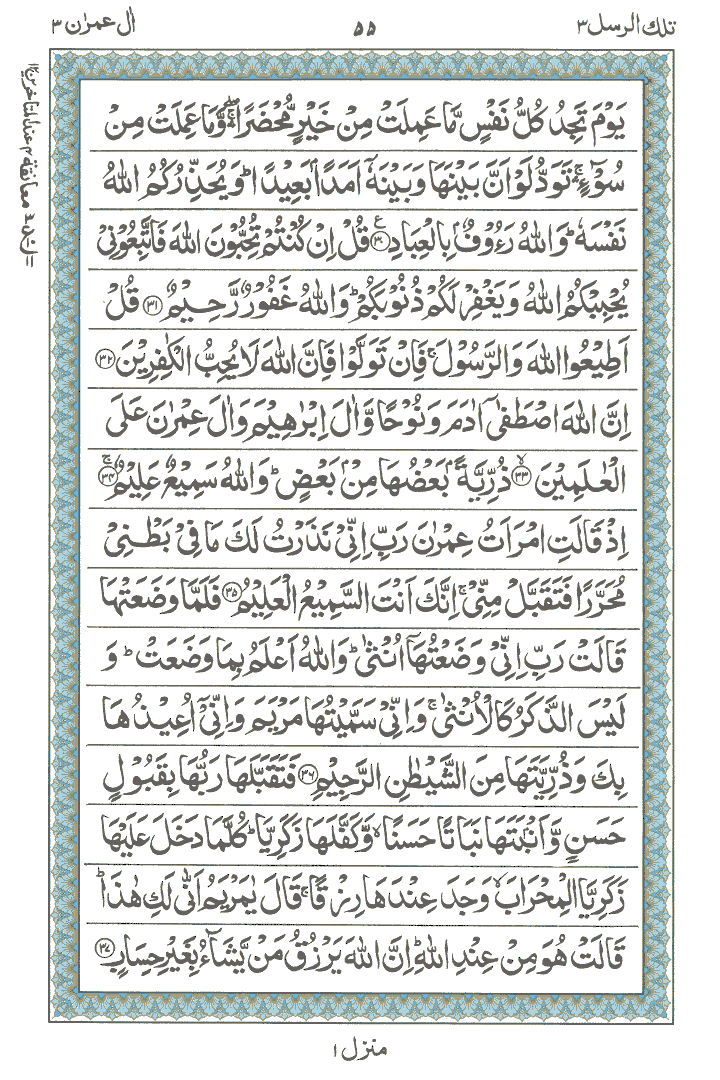 تلك الرسل ٣ ٥٥ اٰل عمرٰن ٣
يَوْمَ تَجِدُ كُلُّ نَفْسٍ مَّا عَمِلَتْ مِنْ خَيْرٍ مُّحْضَرًا ۛۚ وَّمَا عَمِلَتْ مِنْ
سُوْٓءٍ ۛۚ تَوَدُّ لَوْ اَنَّ بَيْنَهَا وَبَيْنَهٗٓ اَمَدًۢا بَعِيْدًا ؕ وَيُحَذِّرُكُمُ اللّٰهُ
نَفْسَهٗ ؕ وَاللّٰهُ رَءُوْفٌۢ بِالْعِبَادِ ﴿٣٠﴾ قُلْ اِنْ كُنْتُمْ تُحِبُّوْنَ اللّٰهَ فَاتَّبِعُوْنِيْ
يُحْبِبْكُمُ اللّٰهُ وَيَغْفِرْ لَكُمْ ذُنُوْبَكُمْ ؕ وَاللّٰهُ غَفُوْرٌ رَّحِيْمٌ ﴿٣١﴾ قُلْ
اَطِيْعُوا اللّٰهَ وَالرَّسُوْلَ ۚ فَاِنْ تَوَلَّوْا فَاِنَّ اللّٰهَ لَا يُحِبُّ الْكٰفِرِيْنَ ﴿٣٢﴾
اِنَّ اللّٰهَ اصْطَفٰٓى اٰدَمَ وَنُوْحًا وَّاٰلَ اِبْرٰهِيْمَ وَاٰلَ عِمْرٰنَ عَلَى
الْعٰلَمِيْنَ ﴿٣٣﴾ۙ ذُرِّيَّةًۢ بَعْضُهَا مِنْۢ بَعْضٍ ؕ وَاللّٰهُ سَمِيْعٌ عَلِيْمٌ ﴿٣٤﴾ۚ
اِذْ قَالَتِ امْرَاَتُ عِمْرٰنَ رَبِّ اِنِّيْ نَذَرْتُ لَكَ مَا فِيْ بَطْنِيْ
مُحَرَّرًا فَتَقَبَّلْ مِنِّيْ ۚ اِنَّكَ اَنْتَ السَّمِيْعُ الْعَلِيْمُ ﴿٣٥﴾ فَلَمَّا وَضَعَتْهَا
قَالَتْ رَبِّ اِنِّيْ وَضَعْتُهَاۤ اُنْثٰى ؕ وَاللّٰهُ اَعْلَمُ بِمَا وَضَعَتْ ؕ وَ
لَيْسَ الذَّكَرُ كَالْاُنْثٰى ۚ وَاِنِّيْ سَمَّيْتُهَا مَرْيَمَ وَاِنِّيْۤ اُعِيْذُهَا
بِكَ وَذُرِّيَّتَهَا مِنَ الشَّيْطٰنِ الرَّجِيْمِ ﴿٣٦﴾ فَتَقَبَّلَهَا رَبُّهَا بِقَبُوْلٍ
حَسَنٍ وَّاَنْۢبَتَهَا نَبَاتًا حَسَنًا ۙ وَّكَفَّلَهَا زَكَرِيَّا ؕ كُلَّمَا دَخَلَ عَلَيْهَا
زَكَرِيَّا الْمِحْرَابَ ۙ وَجَدَ عِنْدَهَا رِزْقًا ۚ قَالَ يٰمَرْيَمُ اَنّٰى لَكِ هٰذَا ؕ
قَالَتْ هُوَ مِنْ عِنْدِ اللّٰهِ ؕ اِنَّ اللّٰهَ يَرْزُقُ مَنْ يَّشَآءُ بِغَيْرِ حِسَابٍ ﴿٣٧﴾
منزل ١